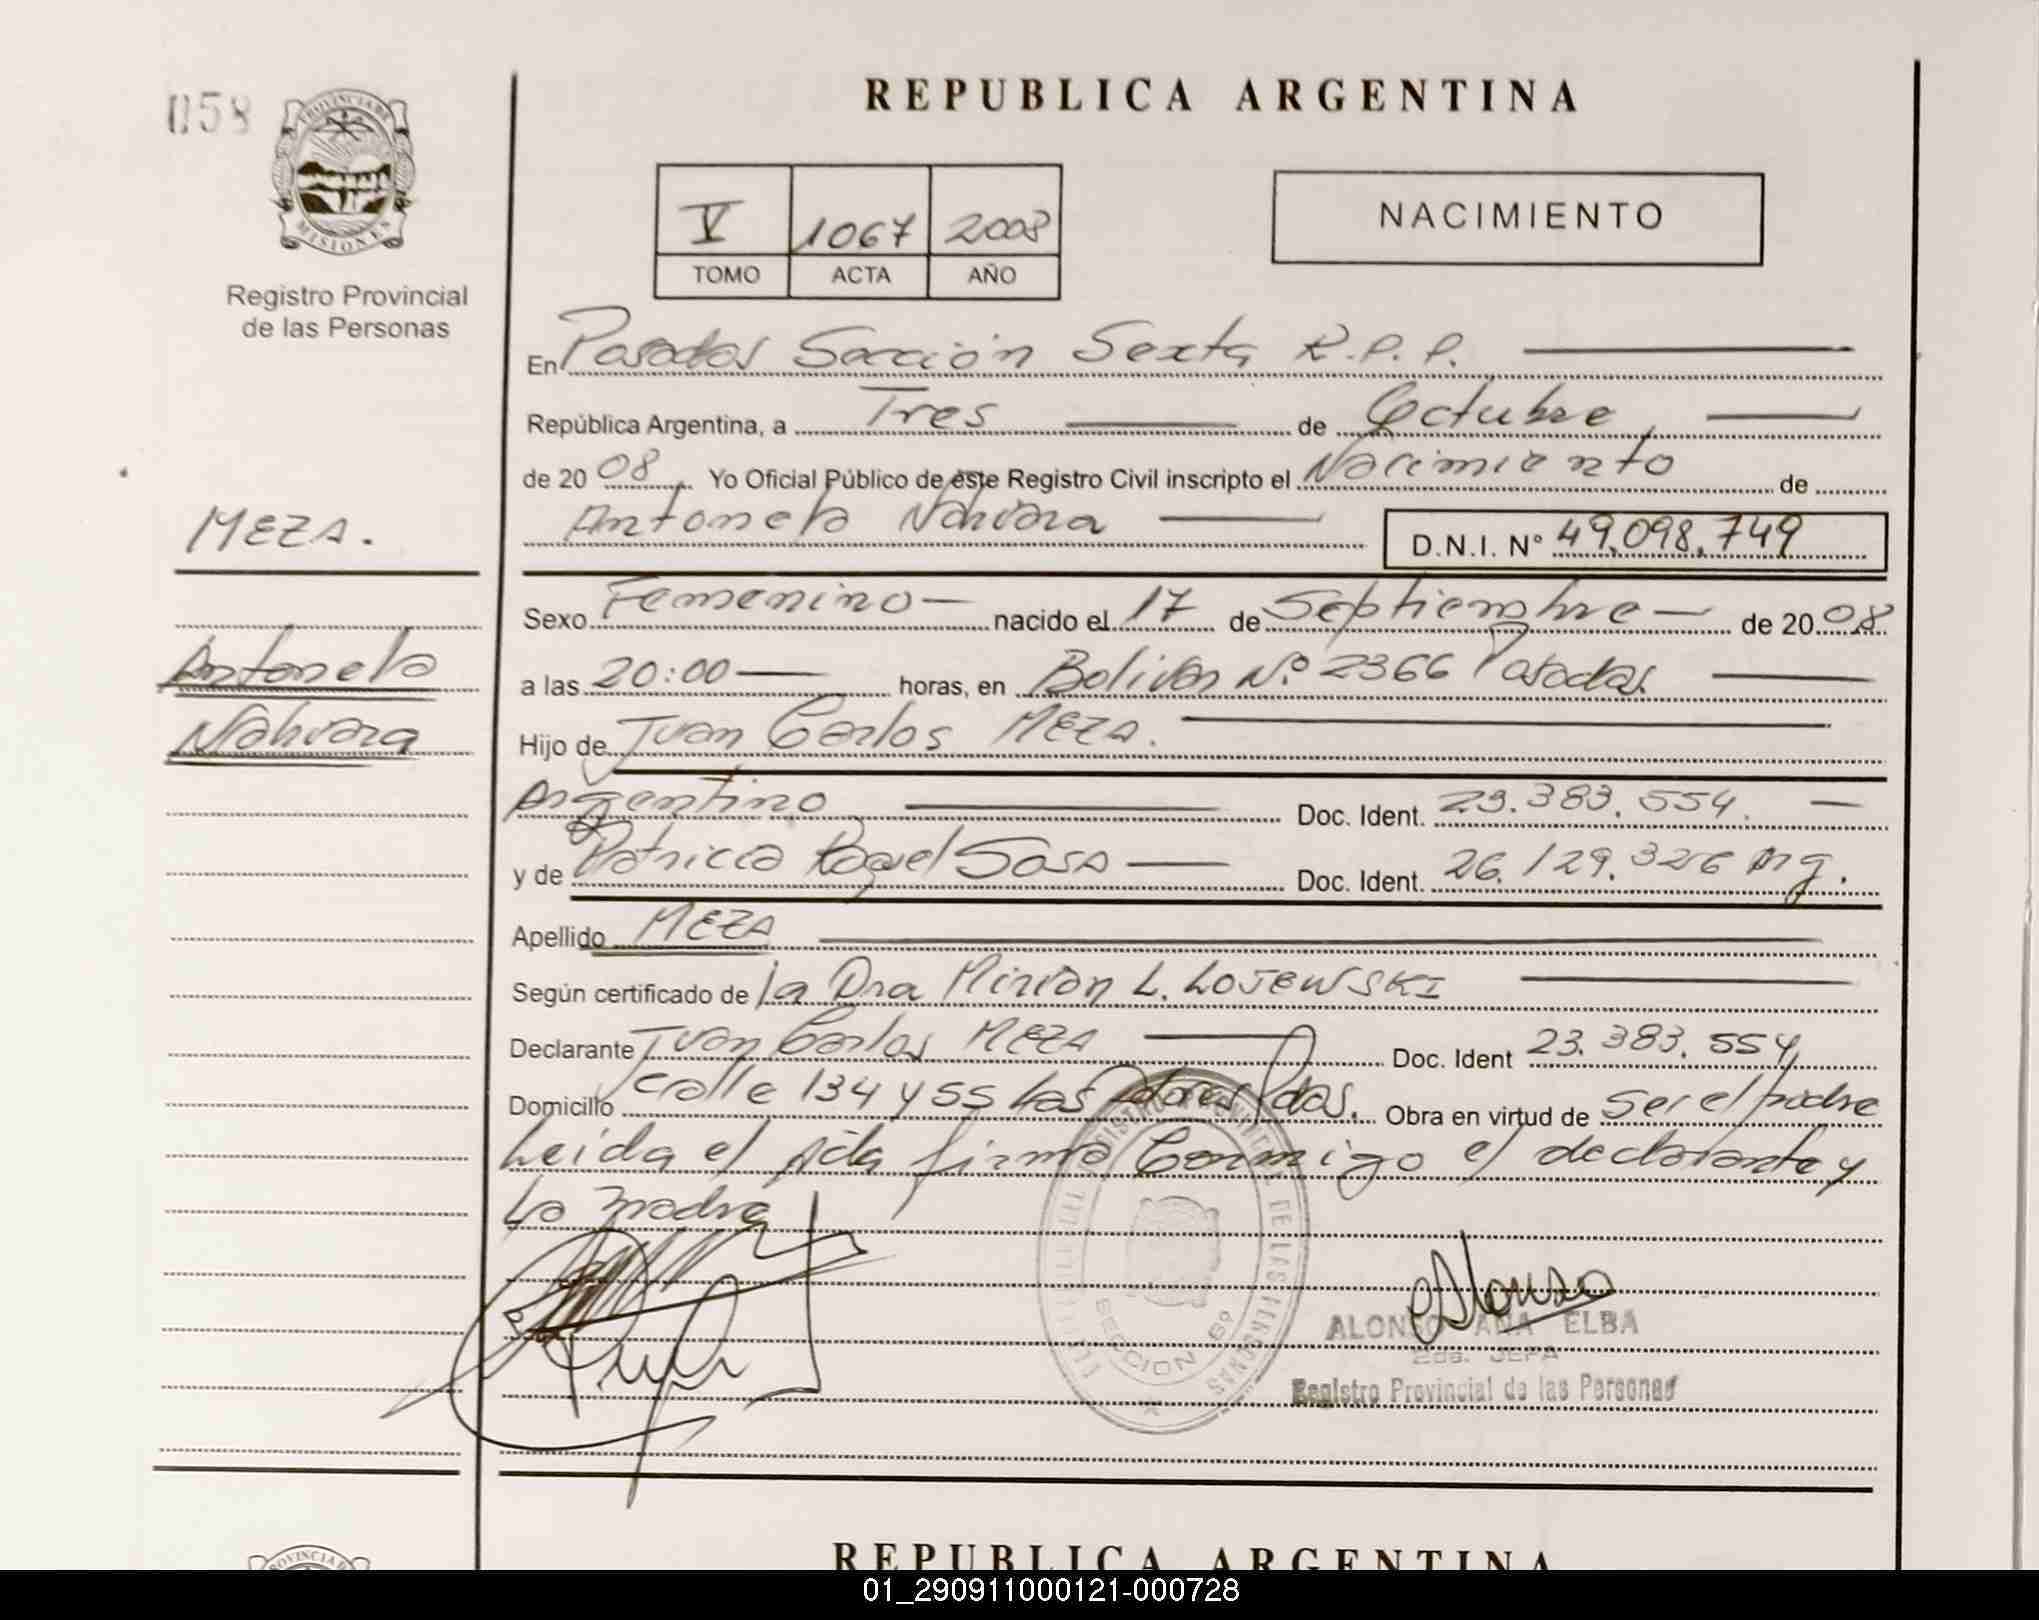 058
PROVINCIA DE
MISIONES
Registro Provincial
de las Personas
REPUBLICA ARGENTINA
V 1067 2008
TOMO ACTA AÑO
NACIMIENTO
En Posadas Sección Sexta R.P.P.
República Argentina, a Tres de Octubre
de 20 08 Yo Oficial Público de éste Registro Civil inscripto el Nacimiento de
Antonela Nahiara D.N.I. N° 49.098.749
MEZA.
Antonela
Nahiara
Sexo Femenino nacido el 17 de Septiembre de 20 08
a las 20:00 horas, en Bolivar N° 2366 Posadas
Hijo de Juan Carlos MEZA.
Argentino Doc. Ident. 23.383.554.
y de Patricia Raquel Sosa Doc. Ident. 26.129.326 Arg.
Apellido MEZA
Según certificado de la Dra Mirian L. LOJEWSKI
Declarante Juan Carlos MEZA Doc. Ident 23.383.554
Domicilio calle 134 y 55 Las Pdas. Obra en virtud de ser el padre
Leida el Acta firma Conmigo el declarante y
La madre
SECCION 6º
Alonso
ALONSO ANA ELBA
2da. JEFA
Registro Provincial de las Personas
PROVINCIA D
REPUBLICA ARGENTINA
01_290911000121-000728